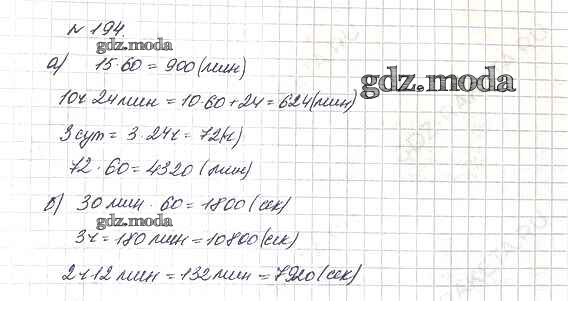 № 194.
gdz.moda
а) 15·60 = 900 (мин)
gdz.moda
10ч 24 мин = 10·60+24 = 624 (мин)
3 сут = 3·24ч = 72(ч)
72·60 = 4320 (мин)
б) 30 мин · 60 = 1800 (сек)
gdz.moda
3ч = 180 мин = 10800 (сек)
2ч 12 мин = 132 мин = 7920 (сек)